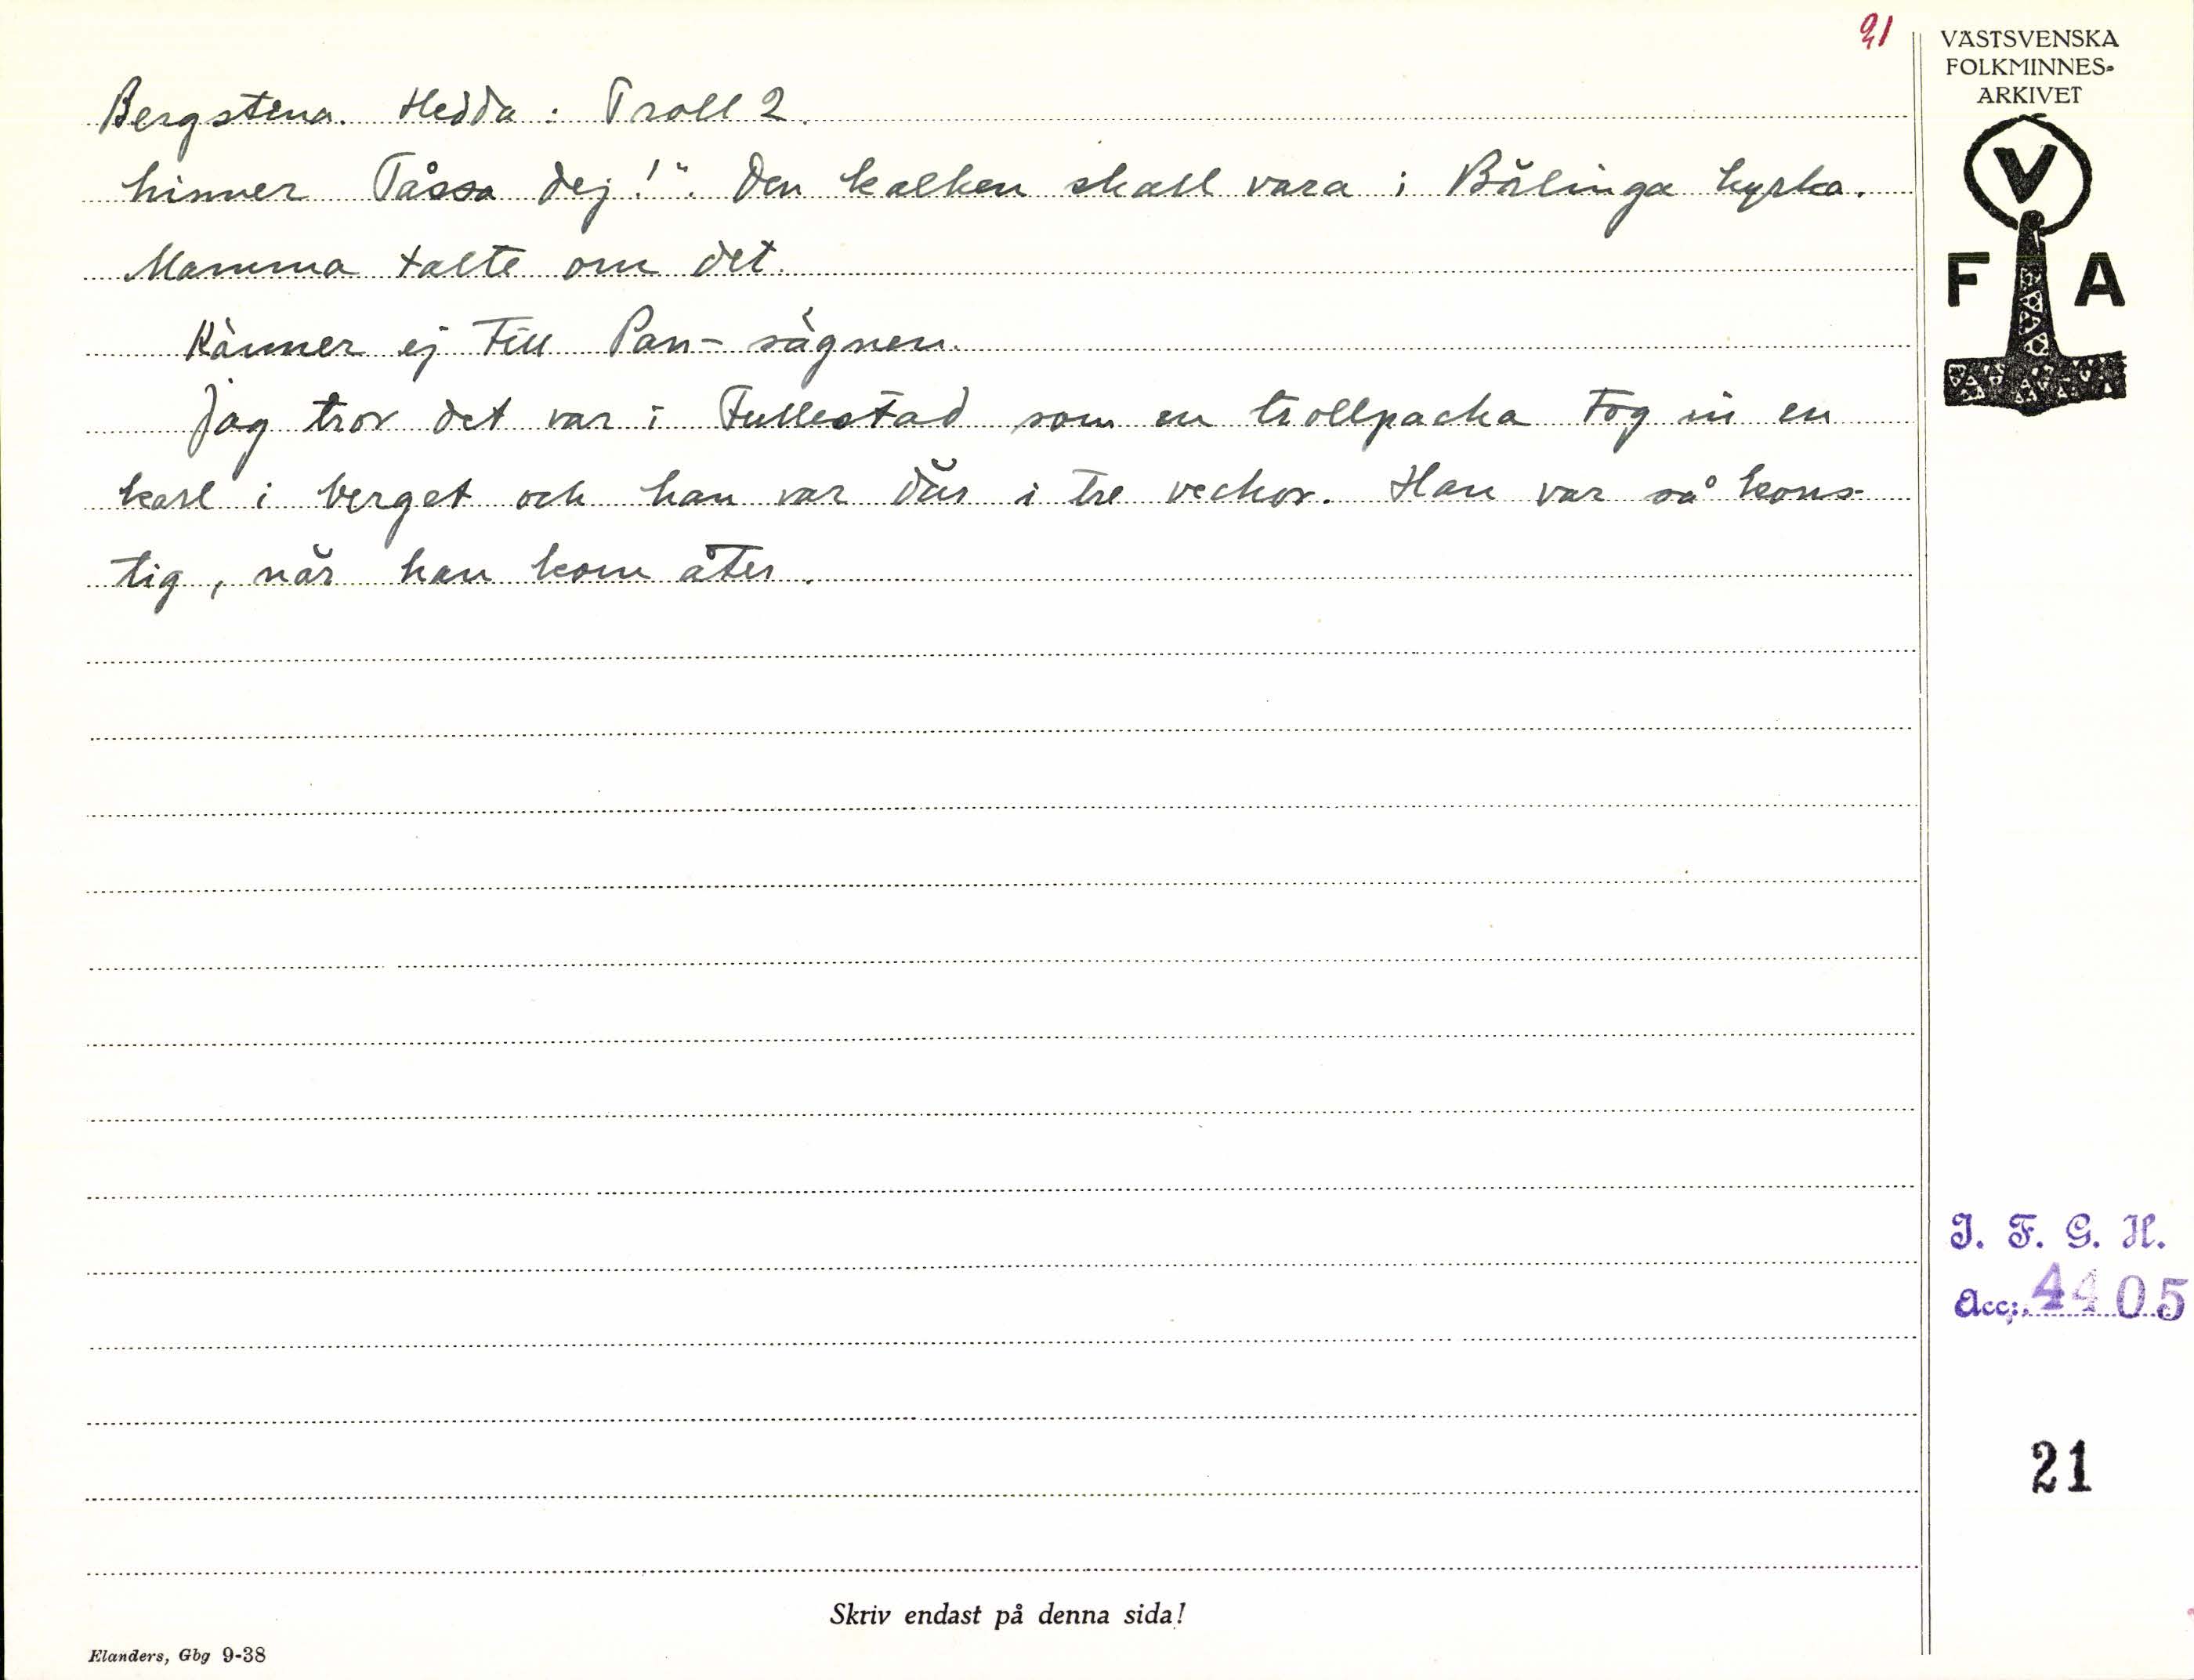 21
VÄSTSVENSKA
FOLKMINNES-
ARKIVET
V
F A
Bergstena. Hedda: Troll 2.
hinner Tåssa dej!". Den kalken skall vara i Bälinga kyrka.
Mamma talte om det.
Känner ej till Pan-sägnen.
Jag tror det var i Fullestad som en trollpacka tog in en
karl i berget och han var där i tre veckor. Han var så kons-
tig, när han kom åter.
I. F. G. H.
Acc: 4405
21
Skriv endast på denna sida!
Elanders, Gbg 9-38